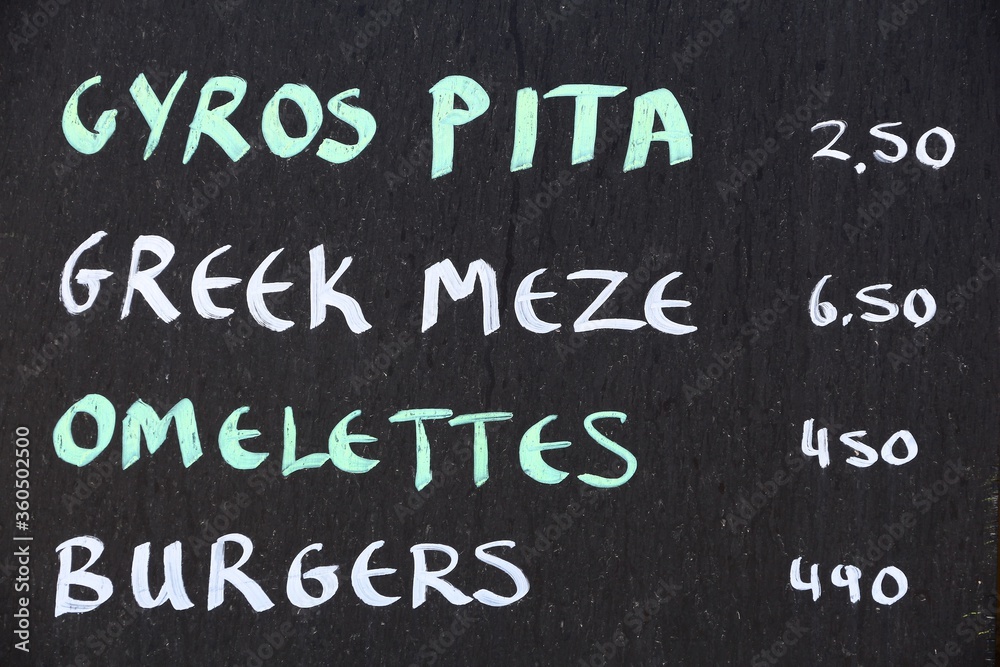 GYROS PITA 2.50
GREEK MEZE 6.50
OMELETTES 450
BURGERS 490
Adobe Stock | #360502500